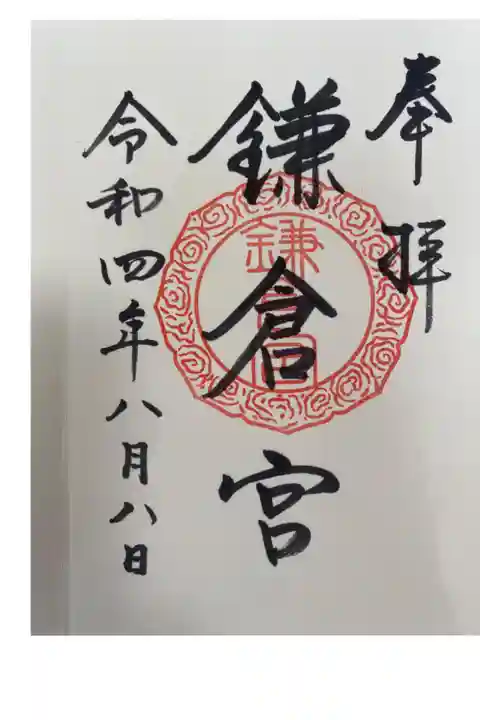 奉拝
鎌倉宮
鎌倉宮
令和四年八月八日